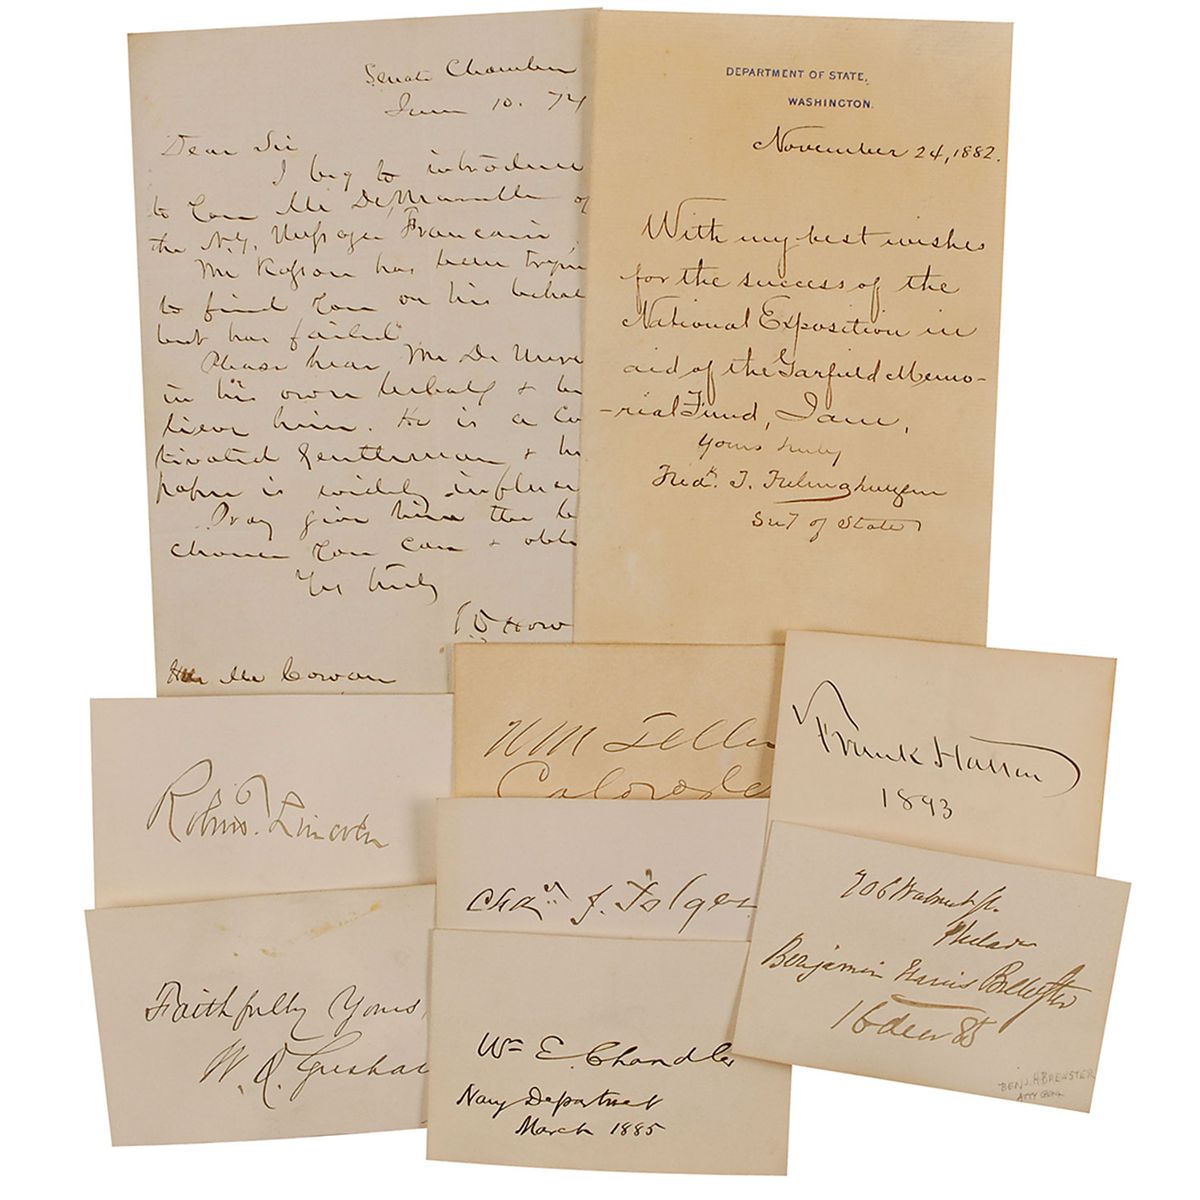 Senate Chamber
June 10. 74
Dear Sir
I beg to introduce
to you Mr De Mareille of
the N.Y. Messager Francais,
Mr Kasson has been tryin
to find you on his behal
but has failed
Please hear Mr De
in his own behalf & be
lieve him. He is a Cu
tivated Gentleman & his
paper is widely influen
Pray give him the be
chance you can & obli
Yrs truly
T O Howe
Mr Cowan
DEPARTMENT OF STATE,
WASHINGTON.
November 24, 1882.
With my best wishes
for the success of the
National Exposition in
aid of the Garfield Memo-
-rial Fund, I am,
Yours truly
Fredk. T. Frelinghuysen
Secy of State
Robert T. Lincoln
H M Teller
Colorado
Frank Hatton
1893
Chas. J. Folger
706 Walnut St.
Philada
Benjamin Harris Brewster
16 Decr 85
BENJ. H BREWSTER
ATTY GENL
Faithfully Yours,
W. Q. Gresham
Wm E. Chandler
Navy Department
March 1885